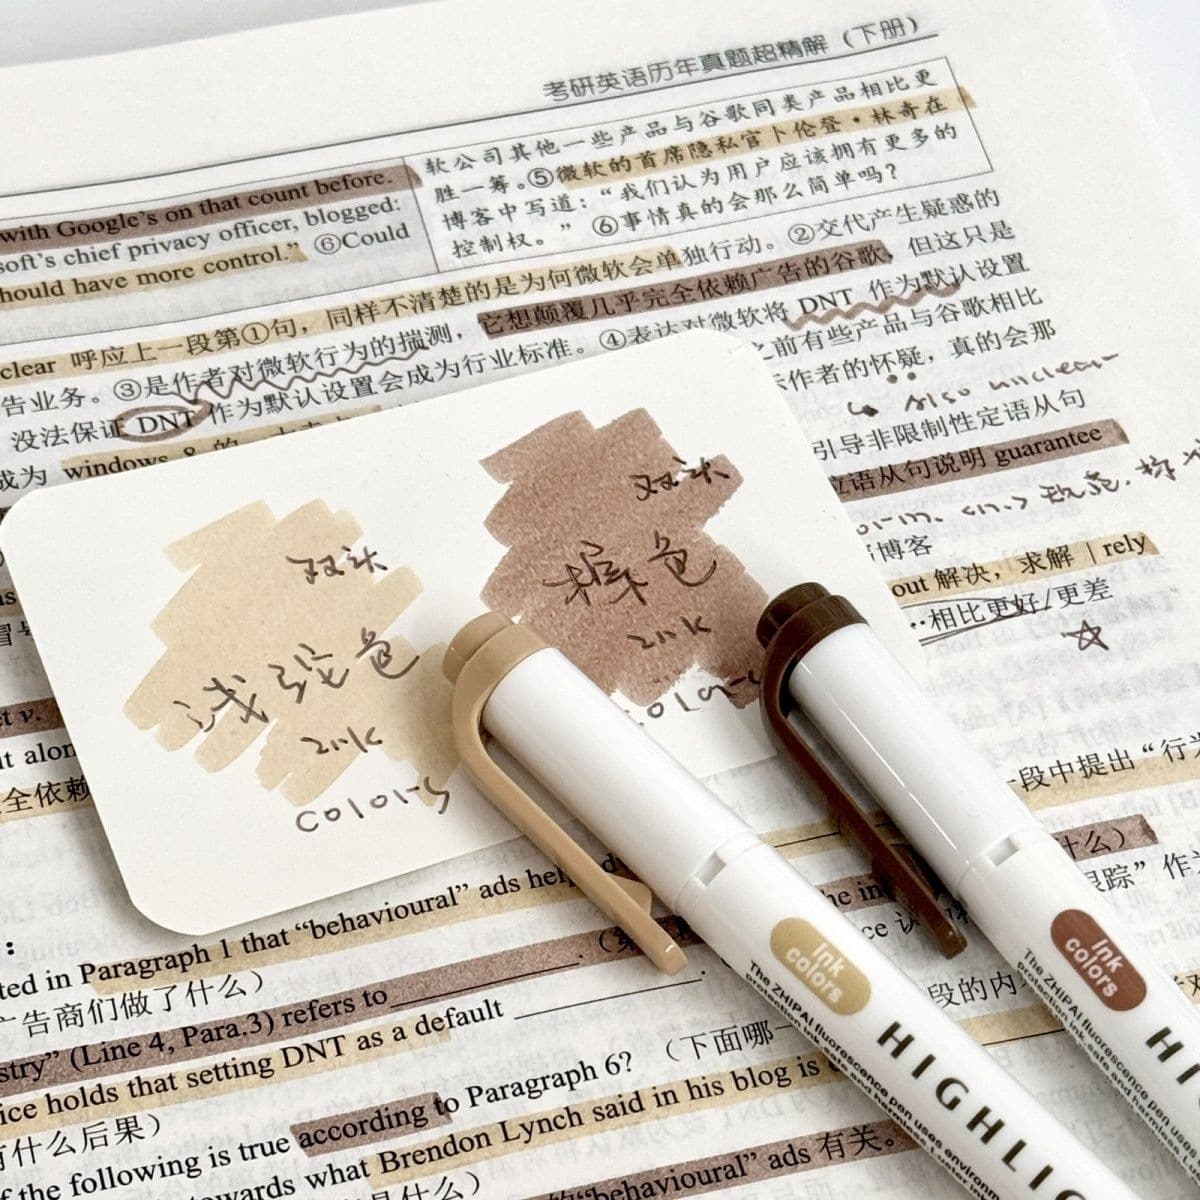 考研英语历年真题超精解（下册）
with Google's on that count before.
soft's chief privacy officer, blogged:
hould have more control." ⑥Could
软公司其他一些产品与谷歌同类产品相比更
胜一筹。⑤微软的首席隐私官卜伦登·林奇在
博客中写道：“我们认为用户应该拥有更多的
控制权。”⑥事情真的会那么简单吗？
clear 呼应上一段第①句，同样不清楚的是为何微软会单独行动。②交代产生疑惑的
告业务。③是作者对微软行为的揣测，它想颠覆几乎完全依赖广告的谷歌，但这只是
没法保证 DNT 作为默认设置会成为行业标准。④表达对微软将 DNT 作为默认设置
成为 windows 8 的
之前有些产品与谷歌相比
作者的怀疑，真的会那
also unclear
引导非限制性定语从句
语从句说明 guarantee
博客
out 解决，求解 | rely
相比更好/更差
双头
浅驼色
ink
colors
双头
榛色
ink
color
et v.
ut alon
全依赖
一段中提出“行为
什么）
跟踪”作为
ted in Paragraph 1 that “behavioural” ads help
广告商们做了什么）
stry” (Line 4, Para.3) refers to
ice holds that setting DNT as a default
有什么后果）
f the following is true according to Paragraph 6? （下面哪一
towards what Brendon Lynch said in his blog is
是什么）
的“behavioural” ads 有关。
段的内
Ink colors
HIGHLI
The ZHIPAI fluorescence pen uses environ
protection ink, safe and harmless
Ink colors
HI
The ZHIPAI fluorescence pen use
protection ink, safe and harmless